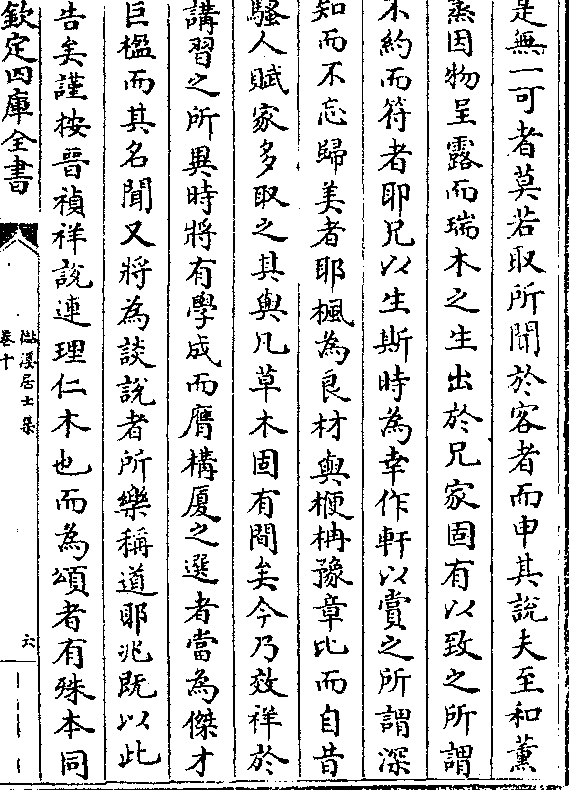 是無一可者莫若取所聞於客者而申其說夫至和薰
蒸因物呈露而瑞木之生出於兄家固有以致之所謂
不約而符者耶兄以生斯時為幸作軒以賞之所謂深
知而不忘歸美者耶楓為良材與楩柟豫章比而自昔
騷人賦家多取之其與凡草木固有間矣今乃效祥於
講習之所異時將有學成而膺構厦之選者當為傑才
巨楹而其名聞又將為談說者所樂稱道耶兆既以此
告矣謹按晉禎祥說連理仁木也而為頌者有殊本同
欽定四庫全書
卷十
居士集
六